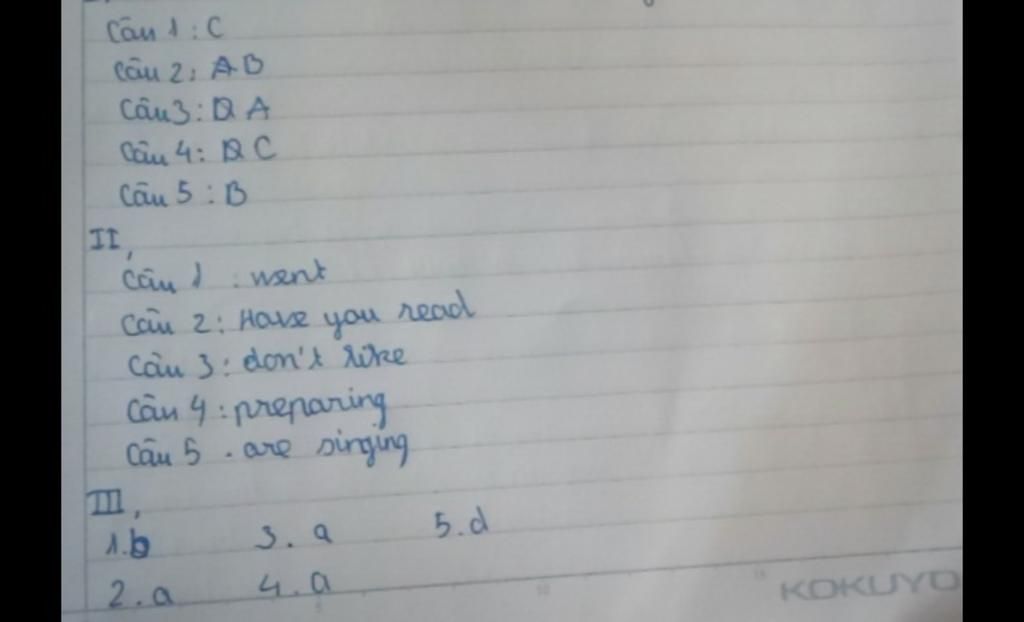 Câu 1 : C
Câu 2: A B
Câu 3: A
Câu 4: C
Câu 5 : B
II,
Câu 1 : went
Câu 2 : Have you read
Câu 3 : don't like
Câu 4 : preparing
Câu 5 . are singing
III,
1.b 3. a 5. d
2. a 4. a
KOKUYO